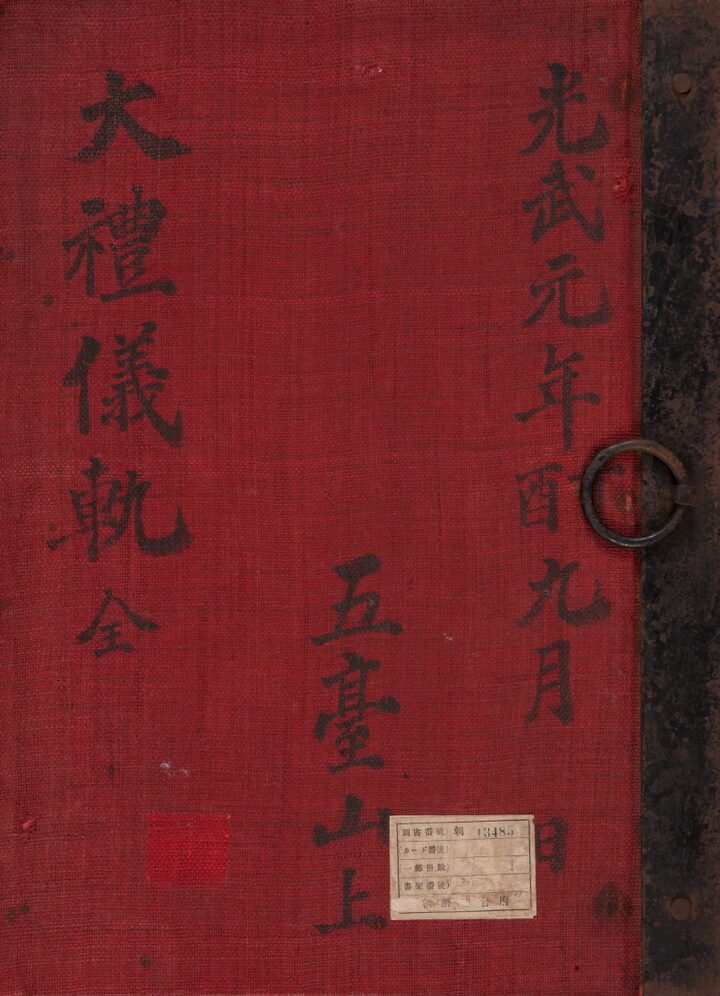 光武元年丁酉九月 日
五臺山上
大禮儀軌 全
圖書番號 朝 13485
カード番號
一部冊數 1
書架番號